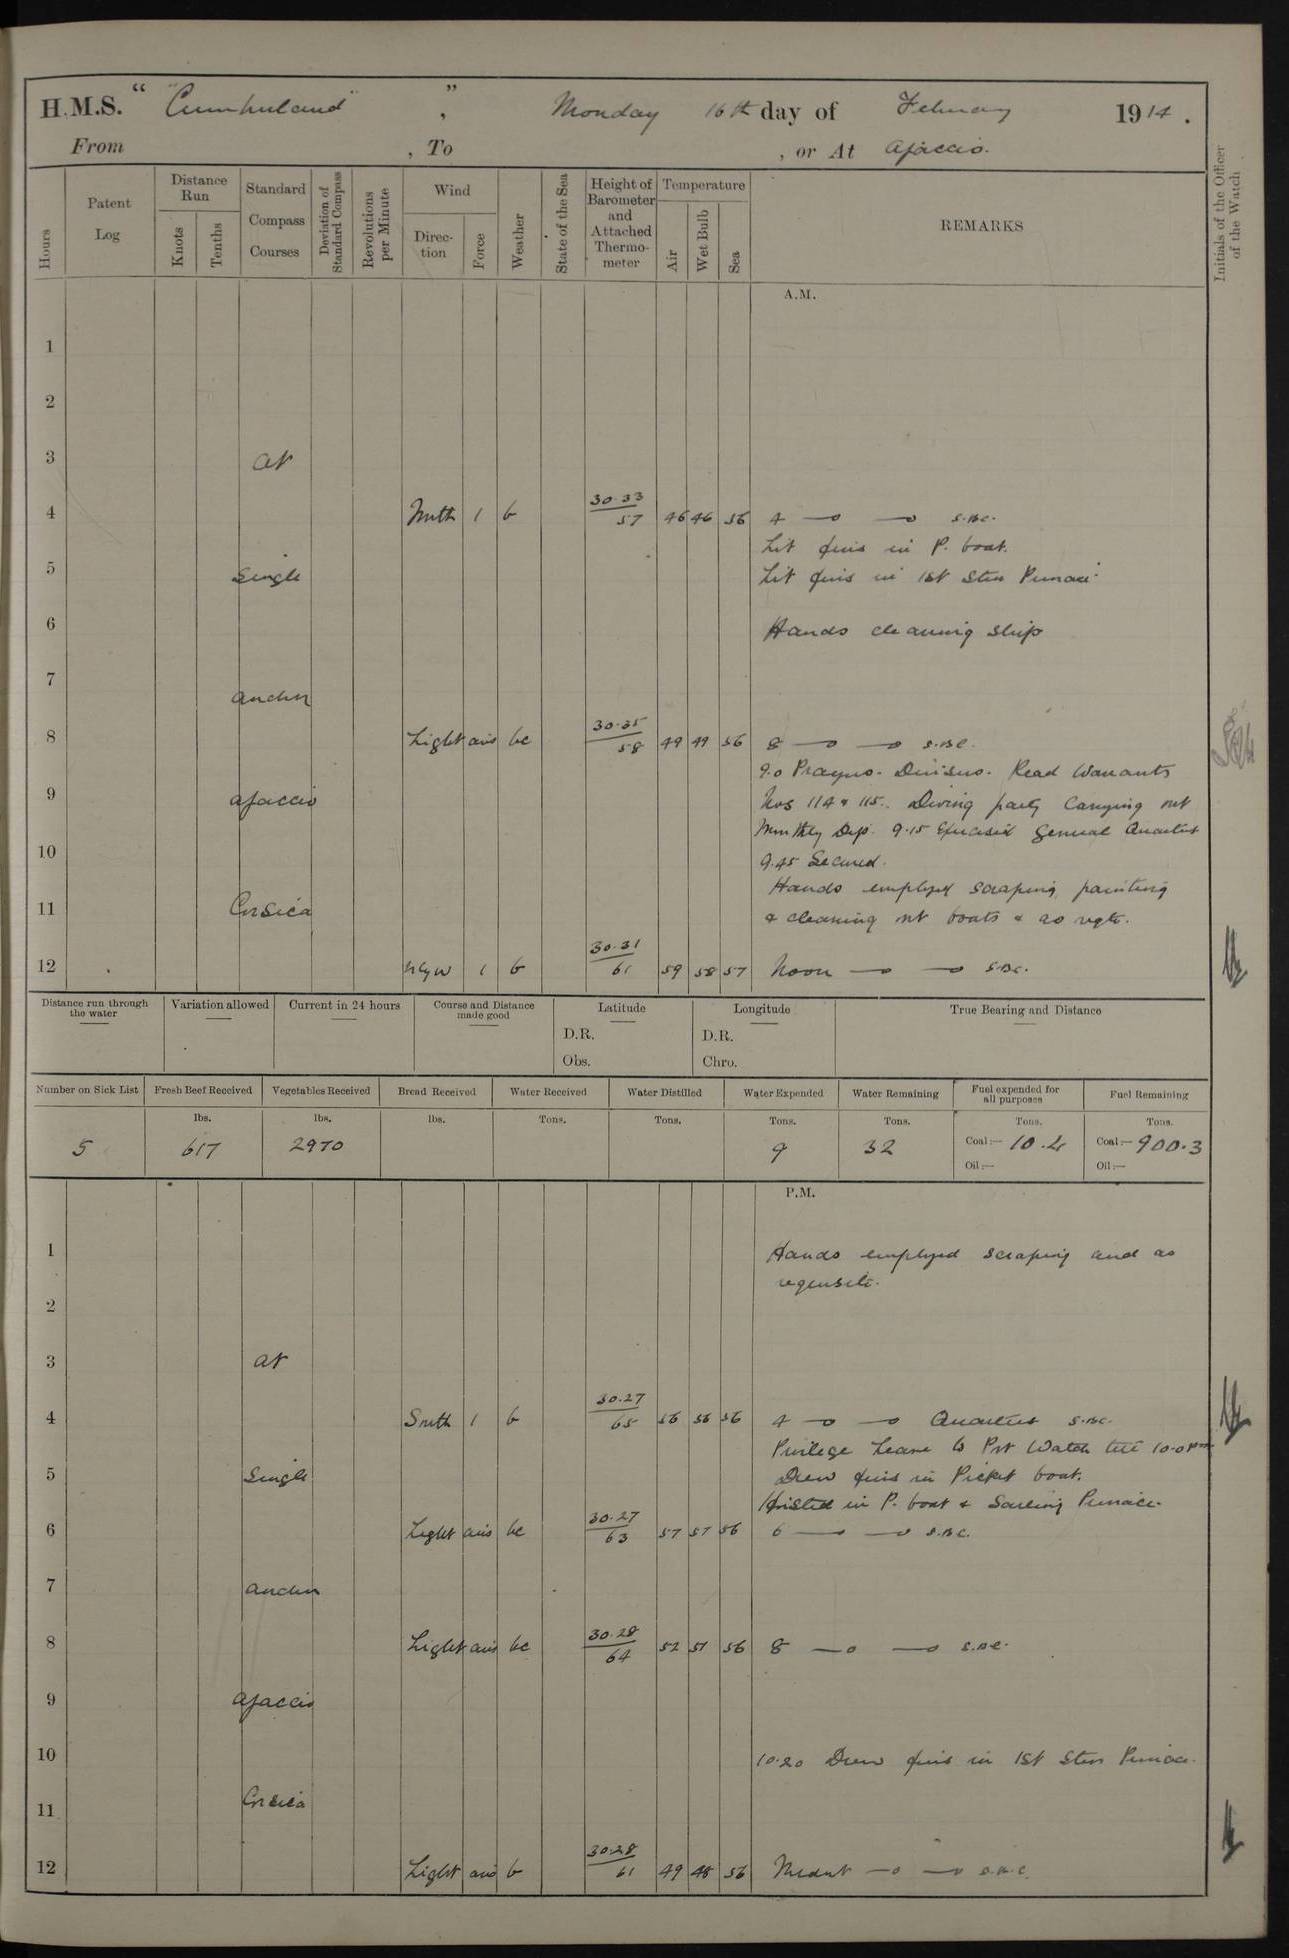 H.M.S. " "Cumberland" , " Monday 16th day of February 1914.
From , To , or At Ajaccio.
Hours
Patent Log
Distance Run
Knots
Tenths
Standard Compass Courses
Deviation of Standard Compass
Revolutions per Minute
Wind
Direction
Force
Weather
State of the Sea
Height of Barometer and Attached Thermometer
Temperature
Air
Wet Bulb
Sea
REMARKS
Initials of the Officer of the Watch
A.M.
1
2
3 At
4 North 1 b 30.33 57 46 46 56 4 —o —o S.B.C.
Lit fires in P. boat.
5 Single Lit fires in 1st Stm Pinnace.
6 Hands cleaning ship
7 anchor
8 Light airs bc 30.35 58 49 49 56 8 —o —o S.B.C.
9.0 Prayers. Divisions. Read Warrants
9 Ajaccio Nos 114 & 115. Diving party carrying out
Monthly Dip. 9.15 Exercised General Quarters
10 9.45 Secured.
Hands employed scraping, painting
11 Corsica & cleaning out boats & as reqte.
12 NbyW 1 b 30.31 61 59 58 57 Noon —o —o S.B.C.
Distance run through the water
Variation allowed
Current in 24 hours
Course and Distance made good
Latitude
D.R.
Obs.
Longitude
D.R.
Chro.
True Bearing and Distance
Number on Sick List Fresh Beef Received Vegetables Received Bread Received Water Received Water Distilled Water Expended Water Remaining Fuel expended for all purposes Fuel Remaining
lbs. lbs. lbs. Tons. Tons. Tons. Tons. Tons. Tons.
5 617 2970 9 32 Coal:— 10.4 Coal:— 900.3
Oil:— Oil:—
P.M.
1 Hands employed scraping and as
requisite.
2
3 At
4 South 1 b 30.27 65 56 56 56 4 —o —o Quarters S.B.C.
Privilege Leave to Prt Watch till 10.0 pm
5 Single Drew fires in Picket boat.
Hoisted in P. boat & Sailing Pinnace.
6 Light airs bc 30.27 63 57 57 56 6 —o —o S.B.C.
7 anchor
8 Light airs bc 30.28 64 52 51 56 8 —o —o S.B.C.
9 Ajaccio
10 10.20 Drew fires in 1st Stm Pinnace.
11 Corsica
12 Light airs b 30.28 61 49 48 56 Midnt —o —o S.B.C.